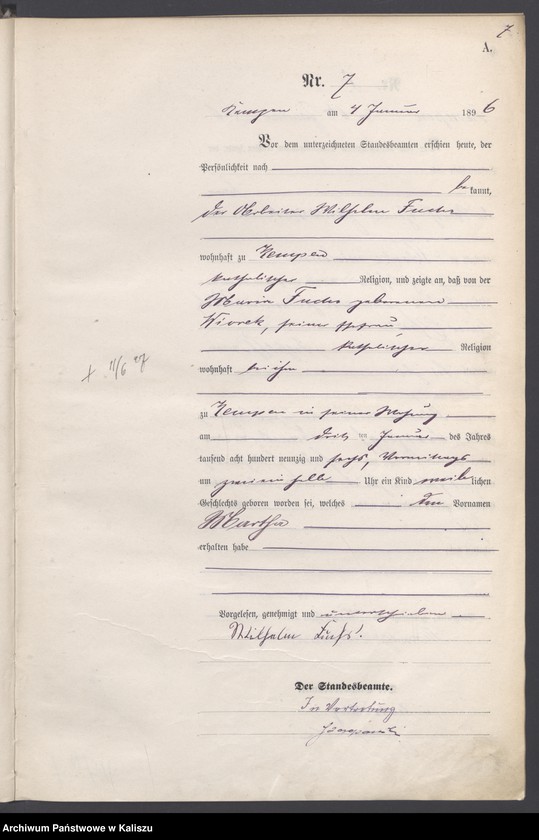 7
A.
Nr. 7
Kempen am 4 Januar 1896
Vor dem unterzeichneten Standesbeamten erschien heute, der
Persönlichkeit nach
bekannt,
der Arbeiter Wilhelm Fuchs
wohnhaft zu Kempen
katholischer Religion, und zeigte an, daß von der
Maria Fuchs geborenen
Wiorek, seiner Ehefrau
katholischer Religion
wohnhaft bei ihm
zu Kempen in seiner Wohnung
am dritten Januar des Jahres
tausend acht hundert neunzig und sechs, Vormittags
um zwei ein halb Uhr ein Kind weiblichen
Geschlechts geboren worden sei, welches den Vornamen
Martha
erhalten habe
Vorgelesen, genehmigt und unterschrieben
Wilhelm Fuchs.
Der Standesbeamte.
In Vertretung
Archiwum Państwowe w Kaliszu